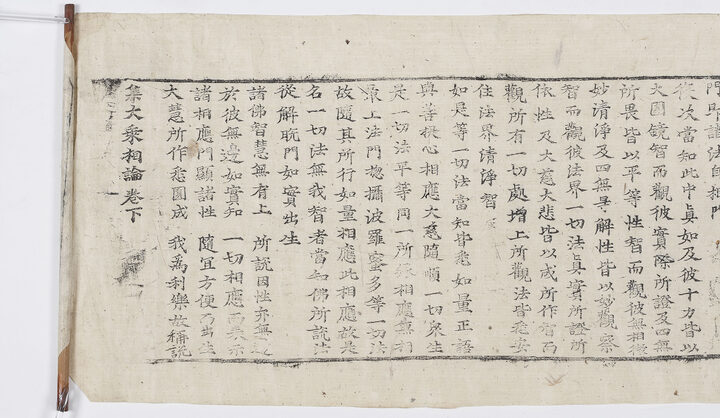 法師相門
從次當知此中真如及彼十力皆以
大圓鏡智而觀彼實際所證及四無
所畏皆以平等性智而觀彼無相微
妙清淨及四無㝵解性皆以妙觀察
智而觀彼法界一切法真實所證所
依性及大慈大悲皆以成所作智而
觀所有一切處增上所觀法皆悉安
住法界清淨智
如是等一切法當知皆悉如量正語
與菩提心相應大慈隨順一切眾生
是一切法平等同一所緣相應無相
最上法門揔攝波羅蜜多等一切法
故隨其所行如量相應此相應故共
名一切法無我智者當知佛所說法
從解脫門如實出生
諸佛智慧無有上 所說因性亦無
於彼無邊如實知 一切相應而表示
諸相應門顯諸性 隨宜方便而出生
大慧所作悉圓成 我爲利樂故稱說
集大乘相論卷下